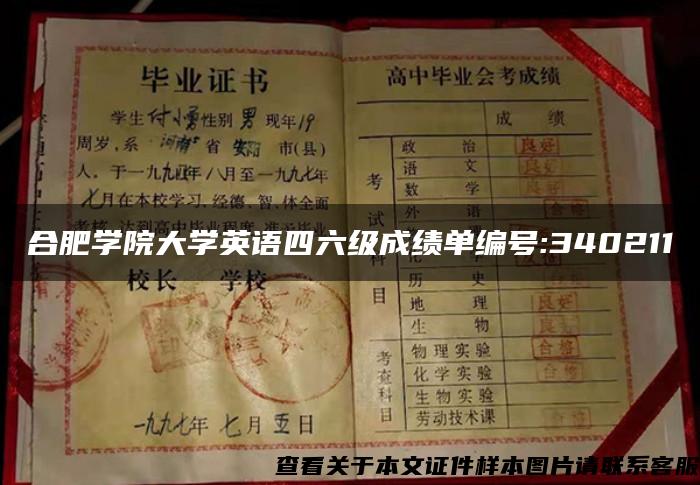 毕业证书
学生付小勇性别男现年19
周岁,系河南省安阳市(县)
人。于一九九四年八月至一九九七年
七月在本校学习,经德、智、体全面
合肥学院大学英语四六级成绩单编号:340211
校长 学校
一九九七年七月五日
高中毕业会考成绩
成绩
考试科目
政治 良好
语文 良好
数学 良好
外语 合格
历史
地理 良好
生物 良好
考查科目
物理实验 合格
化学实验 合格
生物实验
劳动技术课 合格
查看关于本文证件样本图片请联系客服